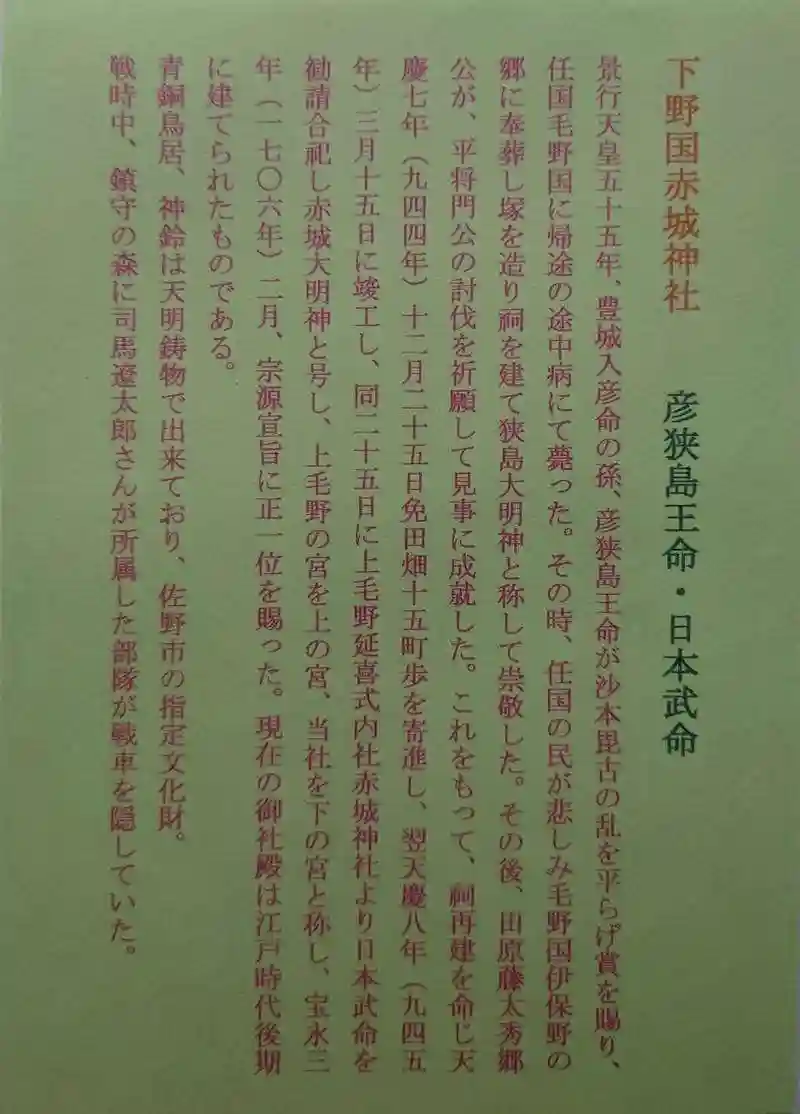 下野国赤城神社　彦狭島王命・日本武命
景行天皇五十五年、豊城入彦命の孫、彦狭島王命が沙本毘古の乱を平らげ賞を賜り、
任国毛野国に帰途の途中病にて薨った。その時、任国の民が悲しみ毛野国伊保野の
郷に奉葬し塚を造り祠を建て狭島大明神と称して崇敬した。その後、田原藤太秀郷
公が、平将門公の討伐を祈願して見事に成就した。これをもって、祠再建を命じ天
慶七年（九四四年）十二月二十五日免田畑十五町歩を寄進し、翌天慶八年（九四五
年）三月十五日に竣工し、同二十五日に上毛野延喜式内社赤城神社より日本武命を
勧請合祀し赤城大明神と号し、上毛野の宮を上の宮、当社を下の宮と称し、宝永三
年（一七〇六年）二月、宗源宣旨に正一位を賜った。現在の御社殿は江戸時代後期
に建てられたものである。
青銅鳥居、神鈴は天明鋳物で出来ており、佐野市の指定文化財。
戦時中、鎮守の森に司馬遼太郎さんが所属した部隊が戦車を隠していた。